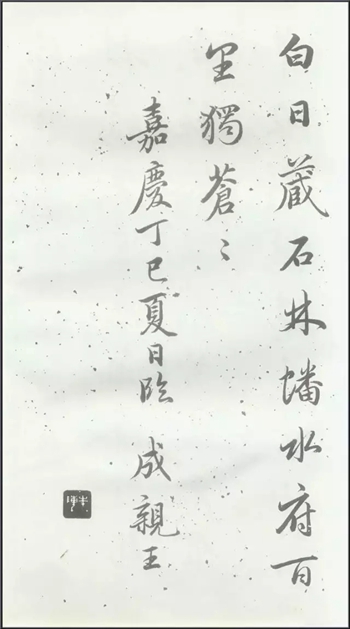 白日藏石林蟠水府百
里獨蒼〻
嘉慶丁巳夏日臨 成親王